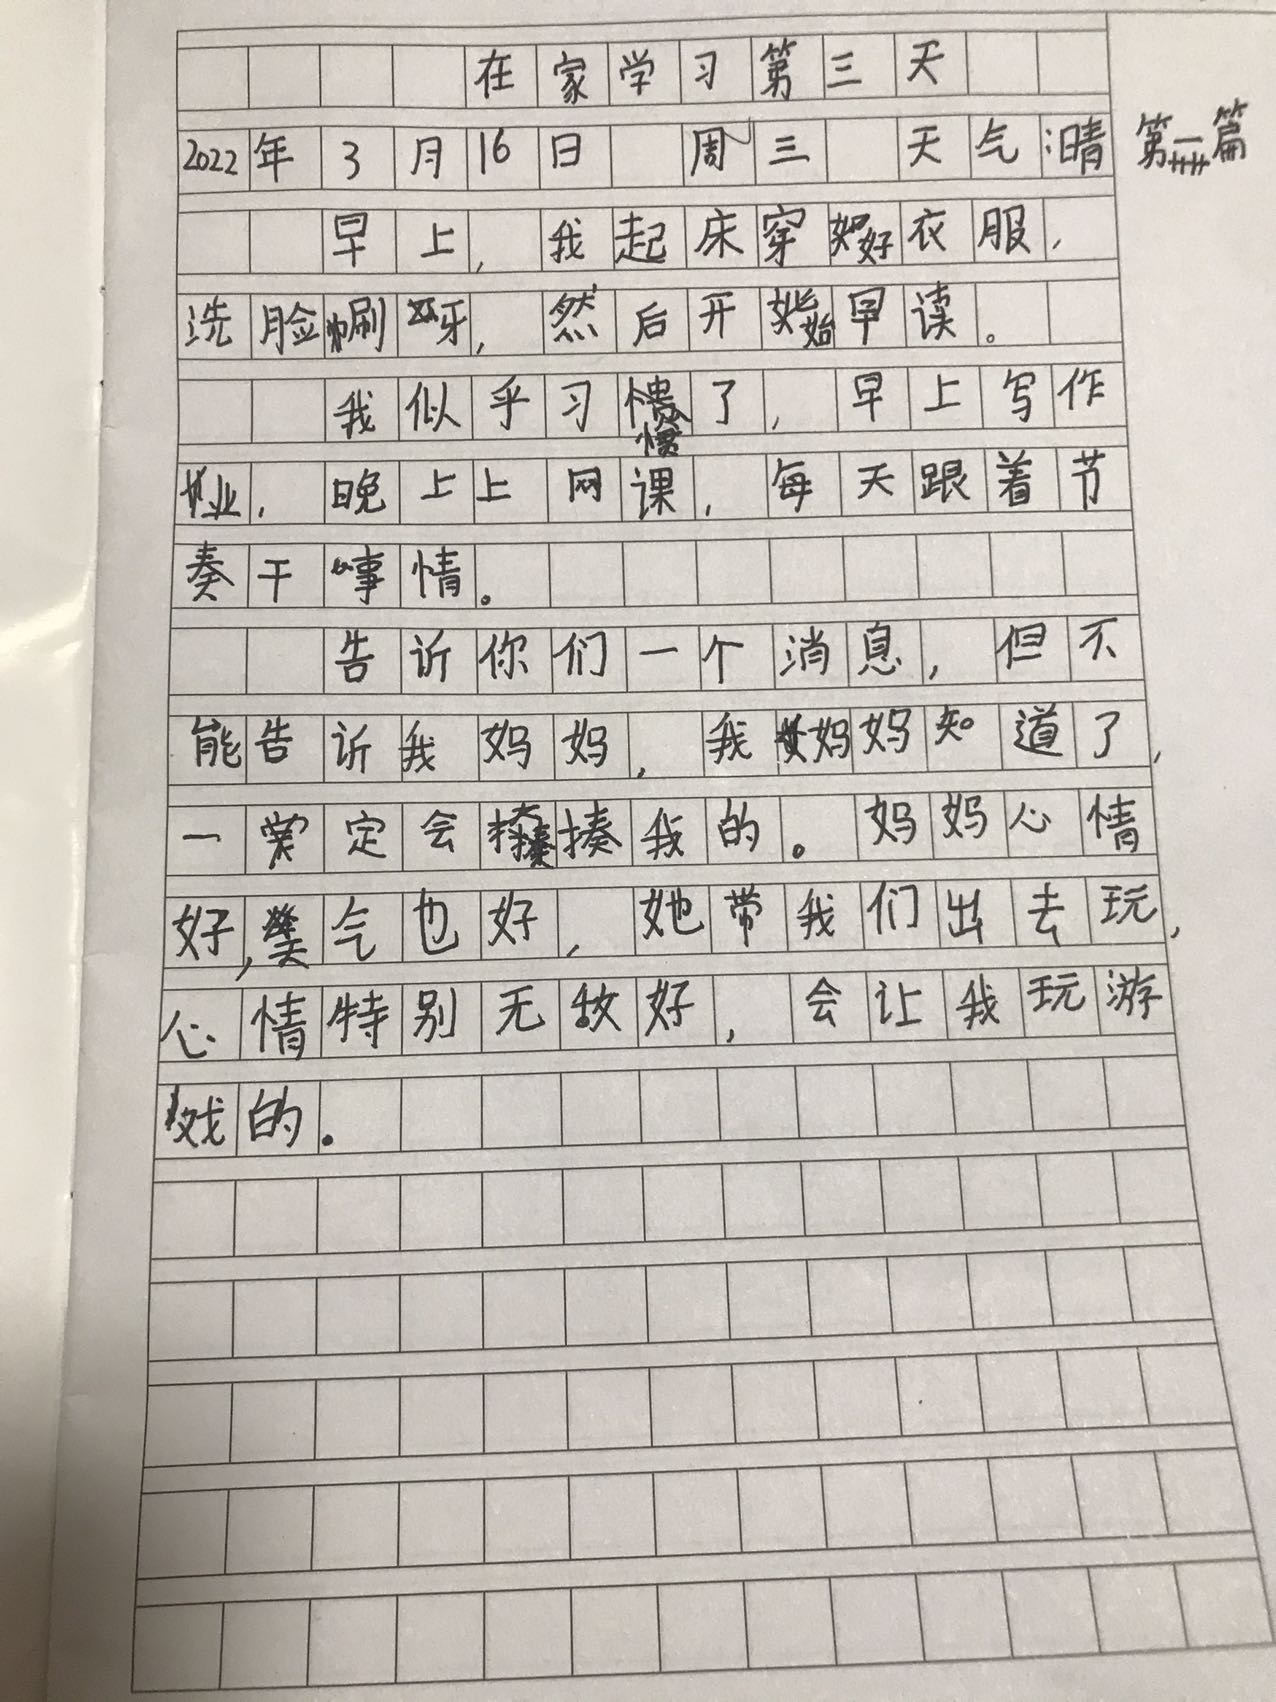 在家学习第三天
2022年3月16日 周三 天气晴
第二篇
早上，我起床穿好衣服，
洗脸刷牙，然后开始早读。
我似乎习惯了，早上写作
业，晚上上网课，每天跟着节
奏干事情。
告诉你们一个消息，但不
能告诉我妈妈，我妈妈知道了，
一定会揍我的。妈妈心情
好，气也好，她带我们出去玩，
心情特别无敌好，会让我玩游
戏的。